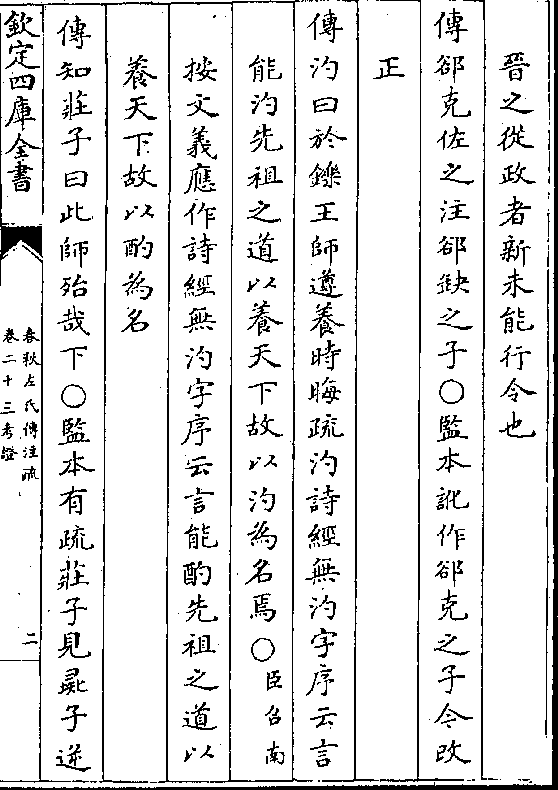 晉之從政者新未能行令也
傳郤克佐之注郤缺之子○監本訛作郤克之子今改
正
傳汋曰於鑠王師遵養時晦疏汋詩經無汋字序云言
能汋先祖之道以養天下故以汋為名焉○臣召南
按文義應作詩經無汋字序云言能酌先祖之道以
養天下故以酌為名
傳知莊子曰此師殆哉下○監本有疏莊子見彘子逆
欽定四庫全書
春秋左氏傳注疏
卷二十三考證
二